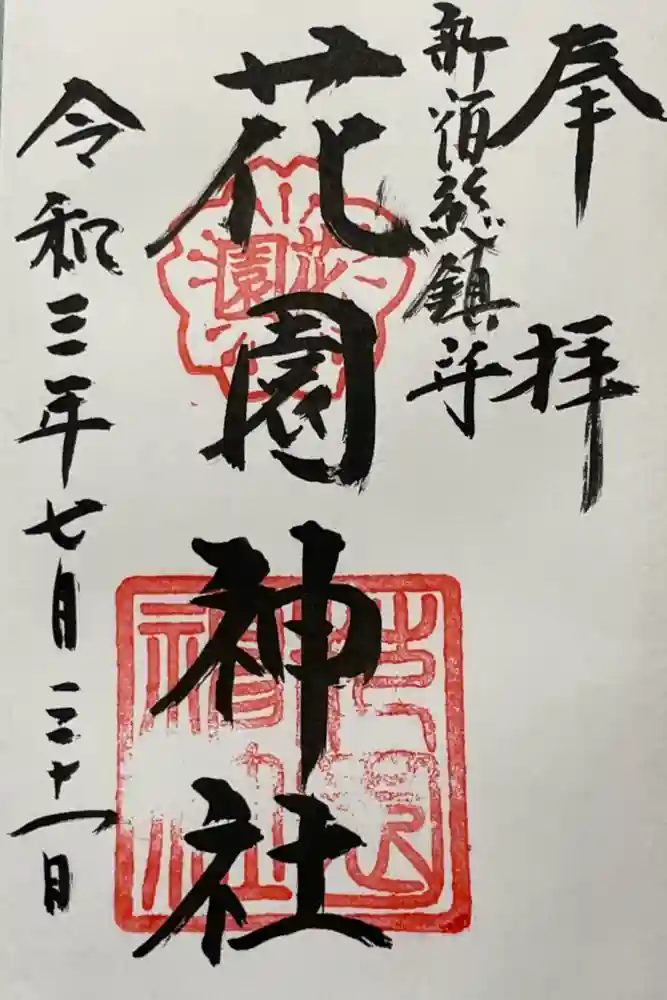 奉拝
新宿総鎮守
花園神社
花園
花園神社
令和三年七月三十一日